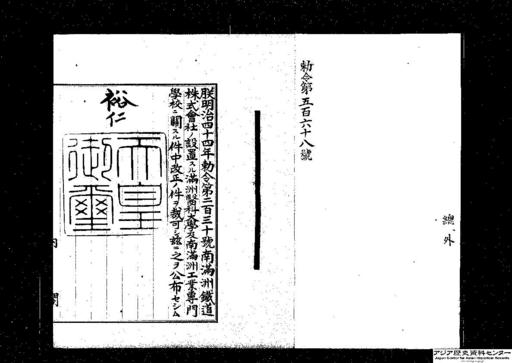 勅令第五百六十八號
總
外
朕明治四十四年勅令第二百三十號南滿洲鐵道
株式會社ノ設置スル滿洲醫科大學及南滿洲工業專門
學校ニ關スル件中改正ノ件ヲ裁可シ茲ニ之ヲ公布セシム
裕仁
天皇
御璽
内
閣
アジア歴史資料センター
Japan Center for Asian Historical Records